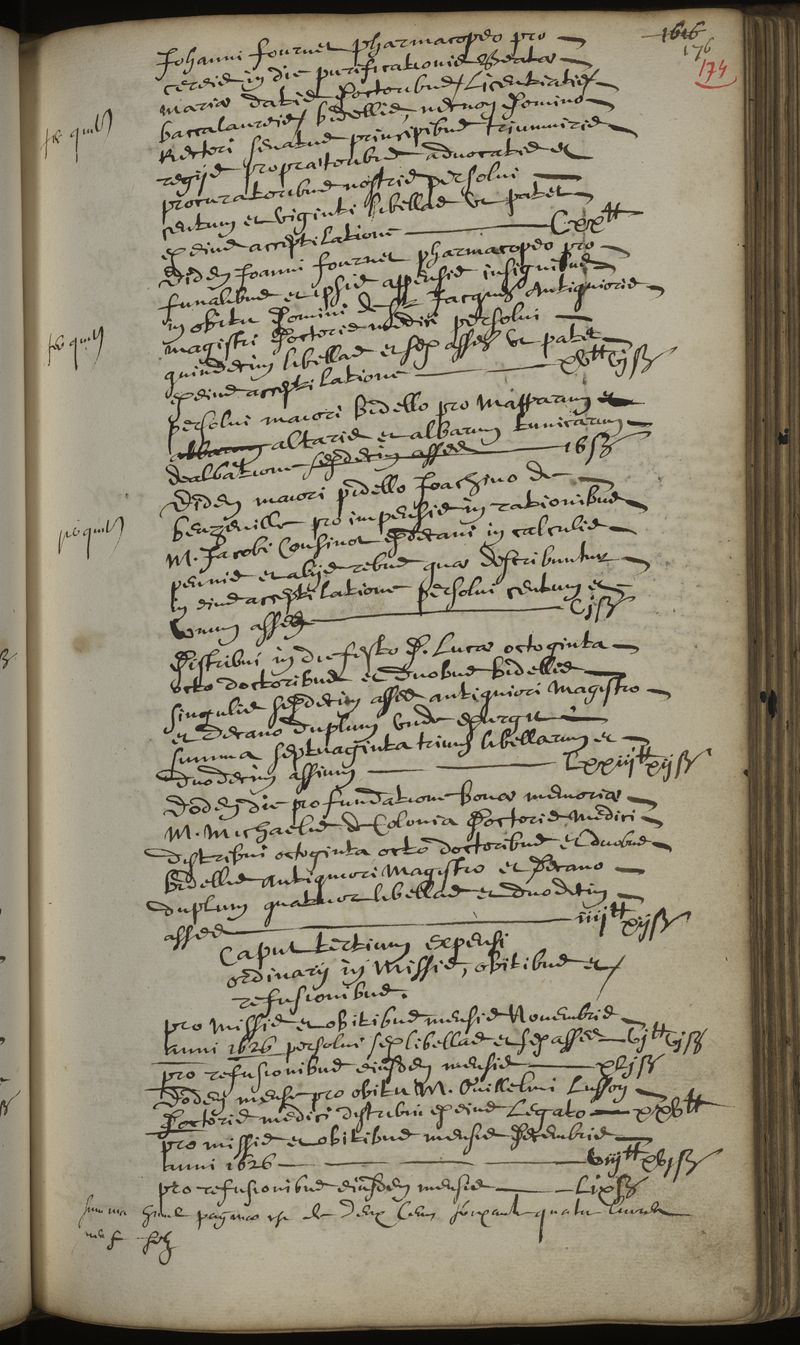 1616
176
174
Johanni fournet pharmacopeo pro
cereis in die purificationis Beatæ
Mariæ datis Doctoribus, Licentiatis,
baccalaureis, bidellis, necnon Domino
Rectori senatus principibus triumuiris
regijs propraetoribus aduocatis et
procuratoribus nostris persolui
centum et viginti libellas vt patet
ex eius acceptilatione Cxx tt
Eidem Joanni fournet pharmacopeo pro
funalibus et ipsis appensis insignibus
in obitu Domini de St Jacques Antiquioris
magistri Doctoris medici persolui
quindecim libellas et sex asses vt patet
ex eius acceptilatione xv tt vj ß
persolui maiori Bidello pro Mapparum et
albarum altaris et albarum tunicarum
dealbatione sexdecim asses 16 ß
Eidem maiori bidello Joachino de
benzeville pro impensis in rationibus
M. Jacobi Cousinot Decani in calculis
pennis et alijs rebus quæ describuntur
in eius acceptilatione persolui centum et
vnum asses Cj ß
Distribui in die festo D. Lucæ octoginta
octo doctoribus et duobus bidellis
singulis sexdecim asses antiquiori Magistro
et decano duplum vnde exurgit
summa septuaginta trium libellarum et
duodecim assium Lxxiij tt xij ß
Eodem die pro fundatione bonæ memoriæ
M. Michaelis de Colonia Doctoris medici
distribui octoginta octo doctoribus et duobus
Bidellis Antiquiori Magistro et Decano
duplum quatuor libellas et duodecim
asses iiij tt xij ß
Caput tertium expensi
ordinarij in Missis, obitibus et
refusionibus.
pro missis et obitibus mensis Nouembris
anni 1626 persolui sex libellas et sex asses vj tt vj ß
pro refusionibus eiusdem mensis xlj ß
Eodem mense pro obitu M. Guillelmi Lusson
Doctoris medici distribui ex eius Legato xxv tt
pro missis et obitibus mensis Decembris
anni 1626 viij tt xvj ß
pro refusionibus eiusdem mensis Lix ß